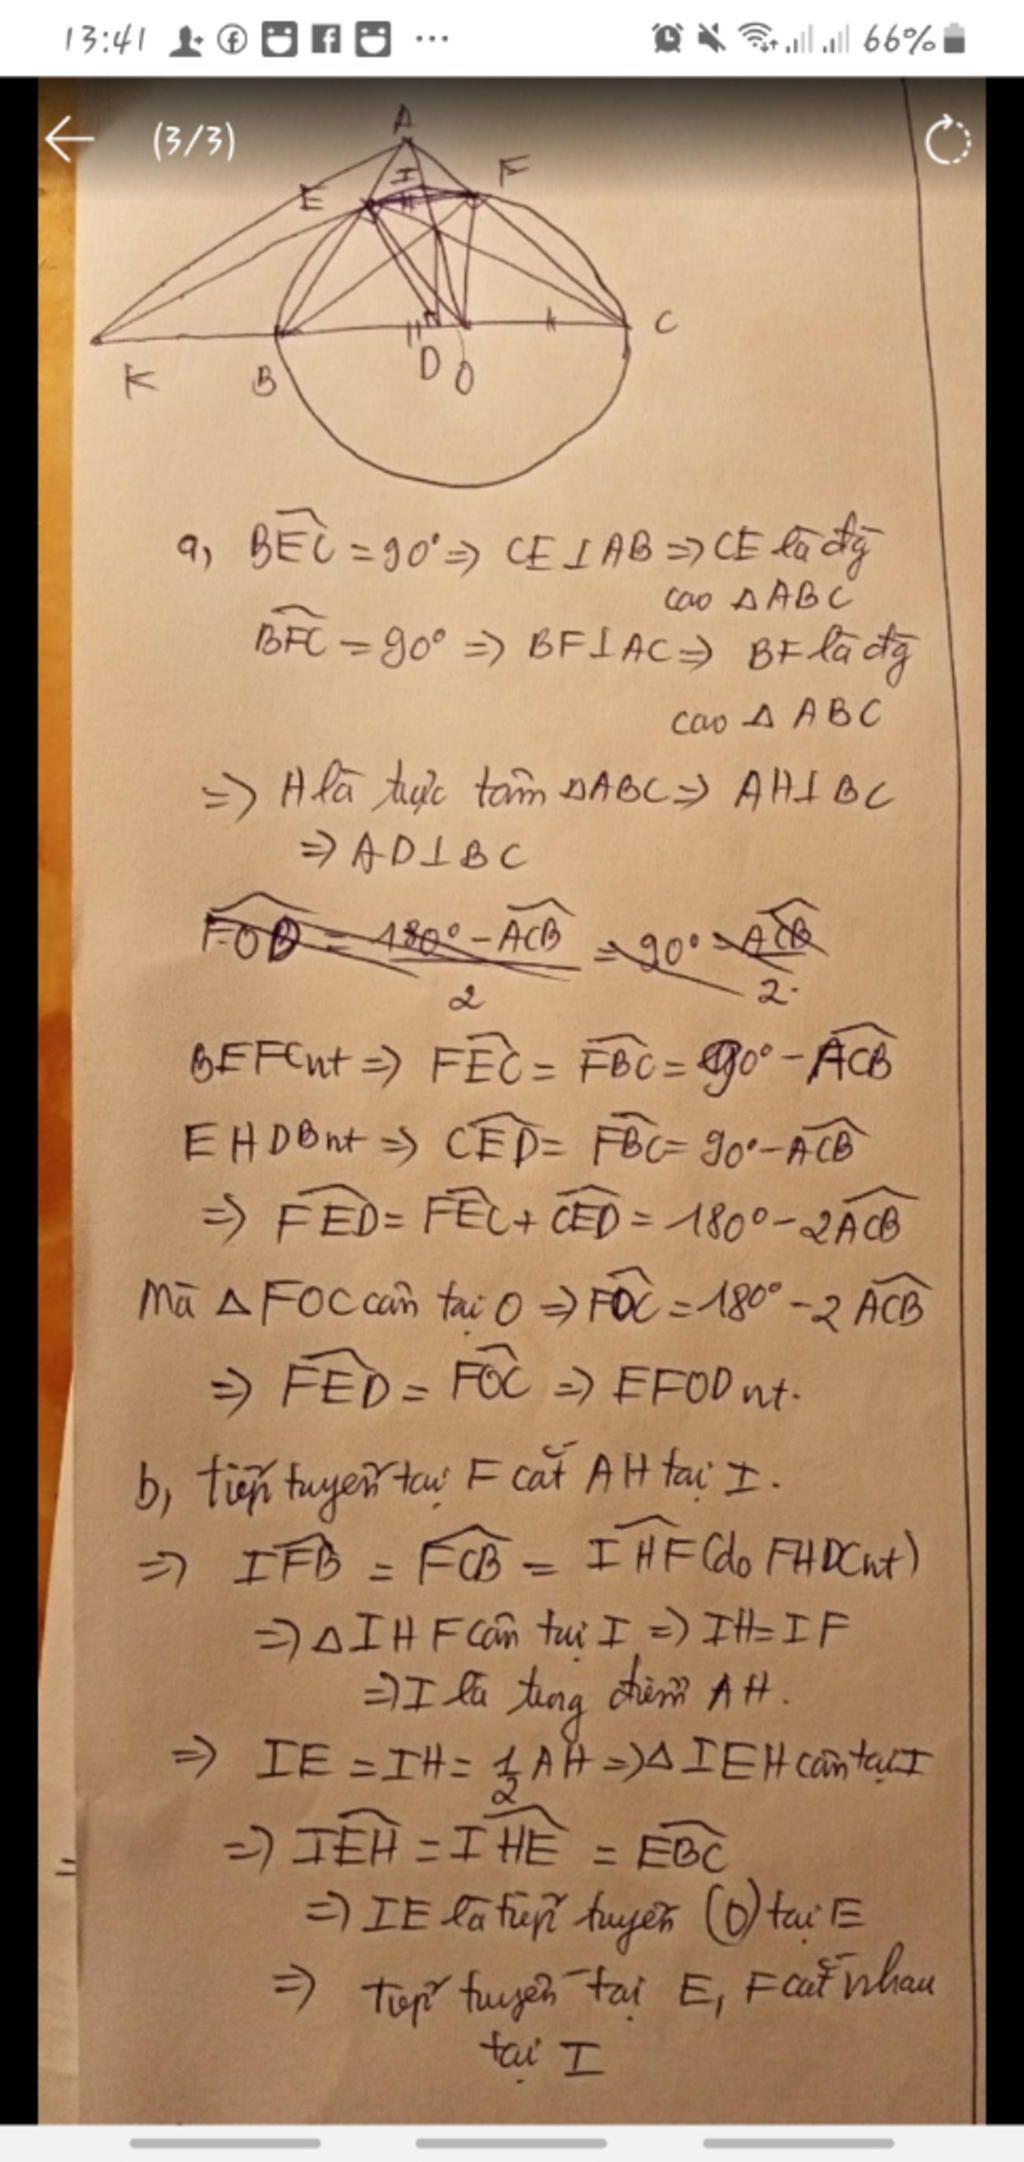 13:41 66%
(3/3)
A
E I F
K B D O C
a, BEC = 90° => CE ⊥ AB => CE là đg
cao △ ABC
BFC = 90° => BF ⊥ AC => BF là đg
cao △ ABC
=> H là trực tâm △ABC => AH ⊥ BC
=> AD ⊥ BC
FOB = 180° - ACB / 2 = 90° - ACB / 2
BEFC nt => FEC = FBC = 90° - ACB
EHDB nt => CED = FBC = 90° - ACB
=> FED = FEC + CED = 180° - 2ACB
Mà △ FOC cân tại O => FOC = 180° - 2 ACB
=> FED = FOC => EFOD nt.
b, tiếp tuyến tại F cắt AH tại I.
=> IFB = FCB = IHF (do FHDC nt)
=> △ IHF cân tại I => IH = IF
=> I là trung điểm AH.
=> IE = IH = 1/2 AH => △ IEH cân tại I
=> IEH = IHE = EBC
=> IE là tiếp tuyến (O) tại E
=> tiếp tuyến tại E, F cắt nhau
tại I